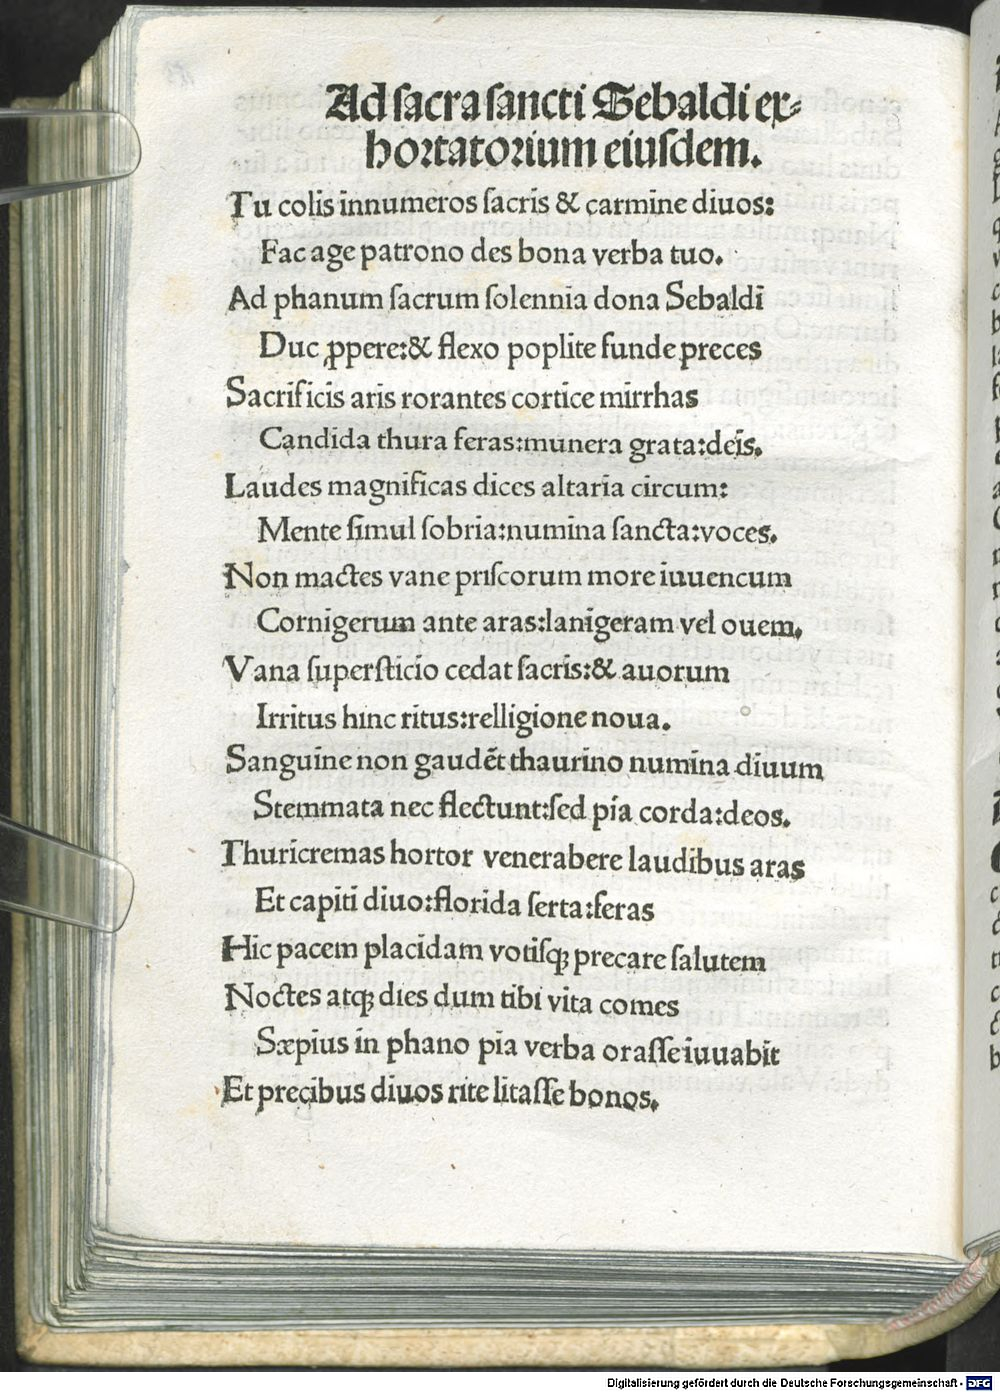 Ad sacra sancti Sebaldi ex⸗
hortatorium eiusdem.
Tu colis innumeros sacris & carmine diuos:
Fac age patrono des bona verba tuo.
Ad phanum sacrum solennia dona Sebaldi
Duc ꝓpere:& flexo poplite funde preces
Sacrificis aris rorantes cortice mirrhas
Candida thura feras:munera grata:deis.
Laudes magnificas dices altaria circum:
Mente simul sobria:numina sancta:voces.
Non mactes vane priscorum more iuuencum
Cornigerum ante aras:lanigeram vel ouem.
Vana supersticio cedat sacris:& auorum
Irritus hinc ritus:relligione noua.
Sanguine non gaudēt thaurino numina diuum
Stemmata nec flectunt:sed pia corda:deos.
Thuricremas hortor venerabere laudibus aras
Et capiti diuo:florida serta:feras
Hic pacem placidam votisqꝫ precare salutem
Noctes atqꝫ dies dum tibi vita comes
Sæpius in phano pia verba orasse iuuabit
Et precibus diuos rite litasse bonos.
Digitalisierung gefördert durch die Deutsche Forschungsgemeinschaft - DFG